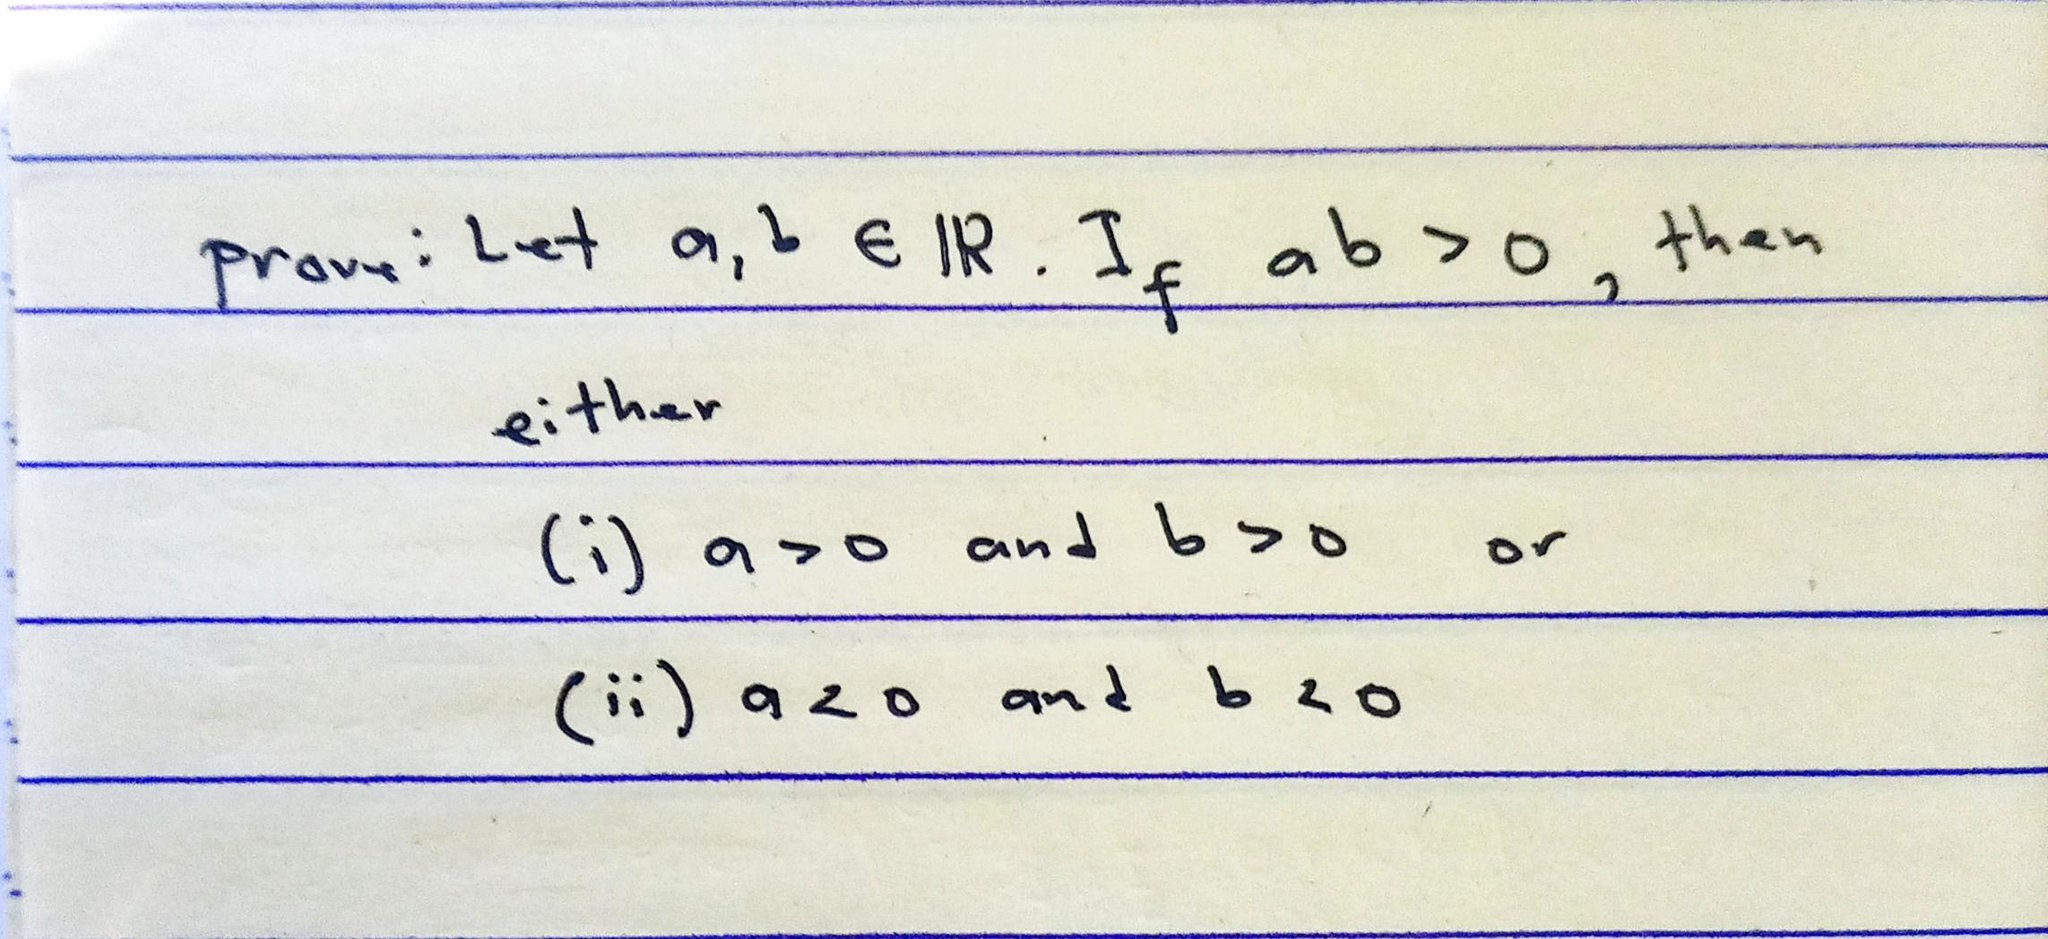 prove: Let a, b ∈ ℝ. If ab > 0, then
either
(i) a > 0 and b > 0 or
(ii) a < 0 and b < 0